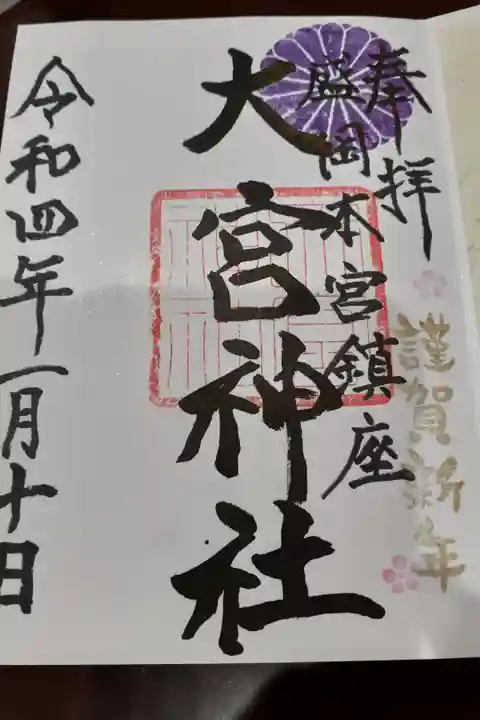 奉拝
謹賀新年
盛岡本宮鎮座
大宮神社
令和四年一月十日